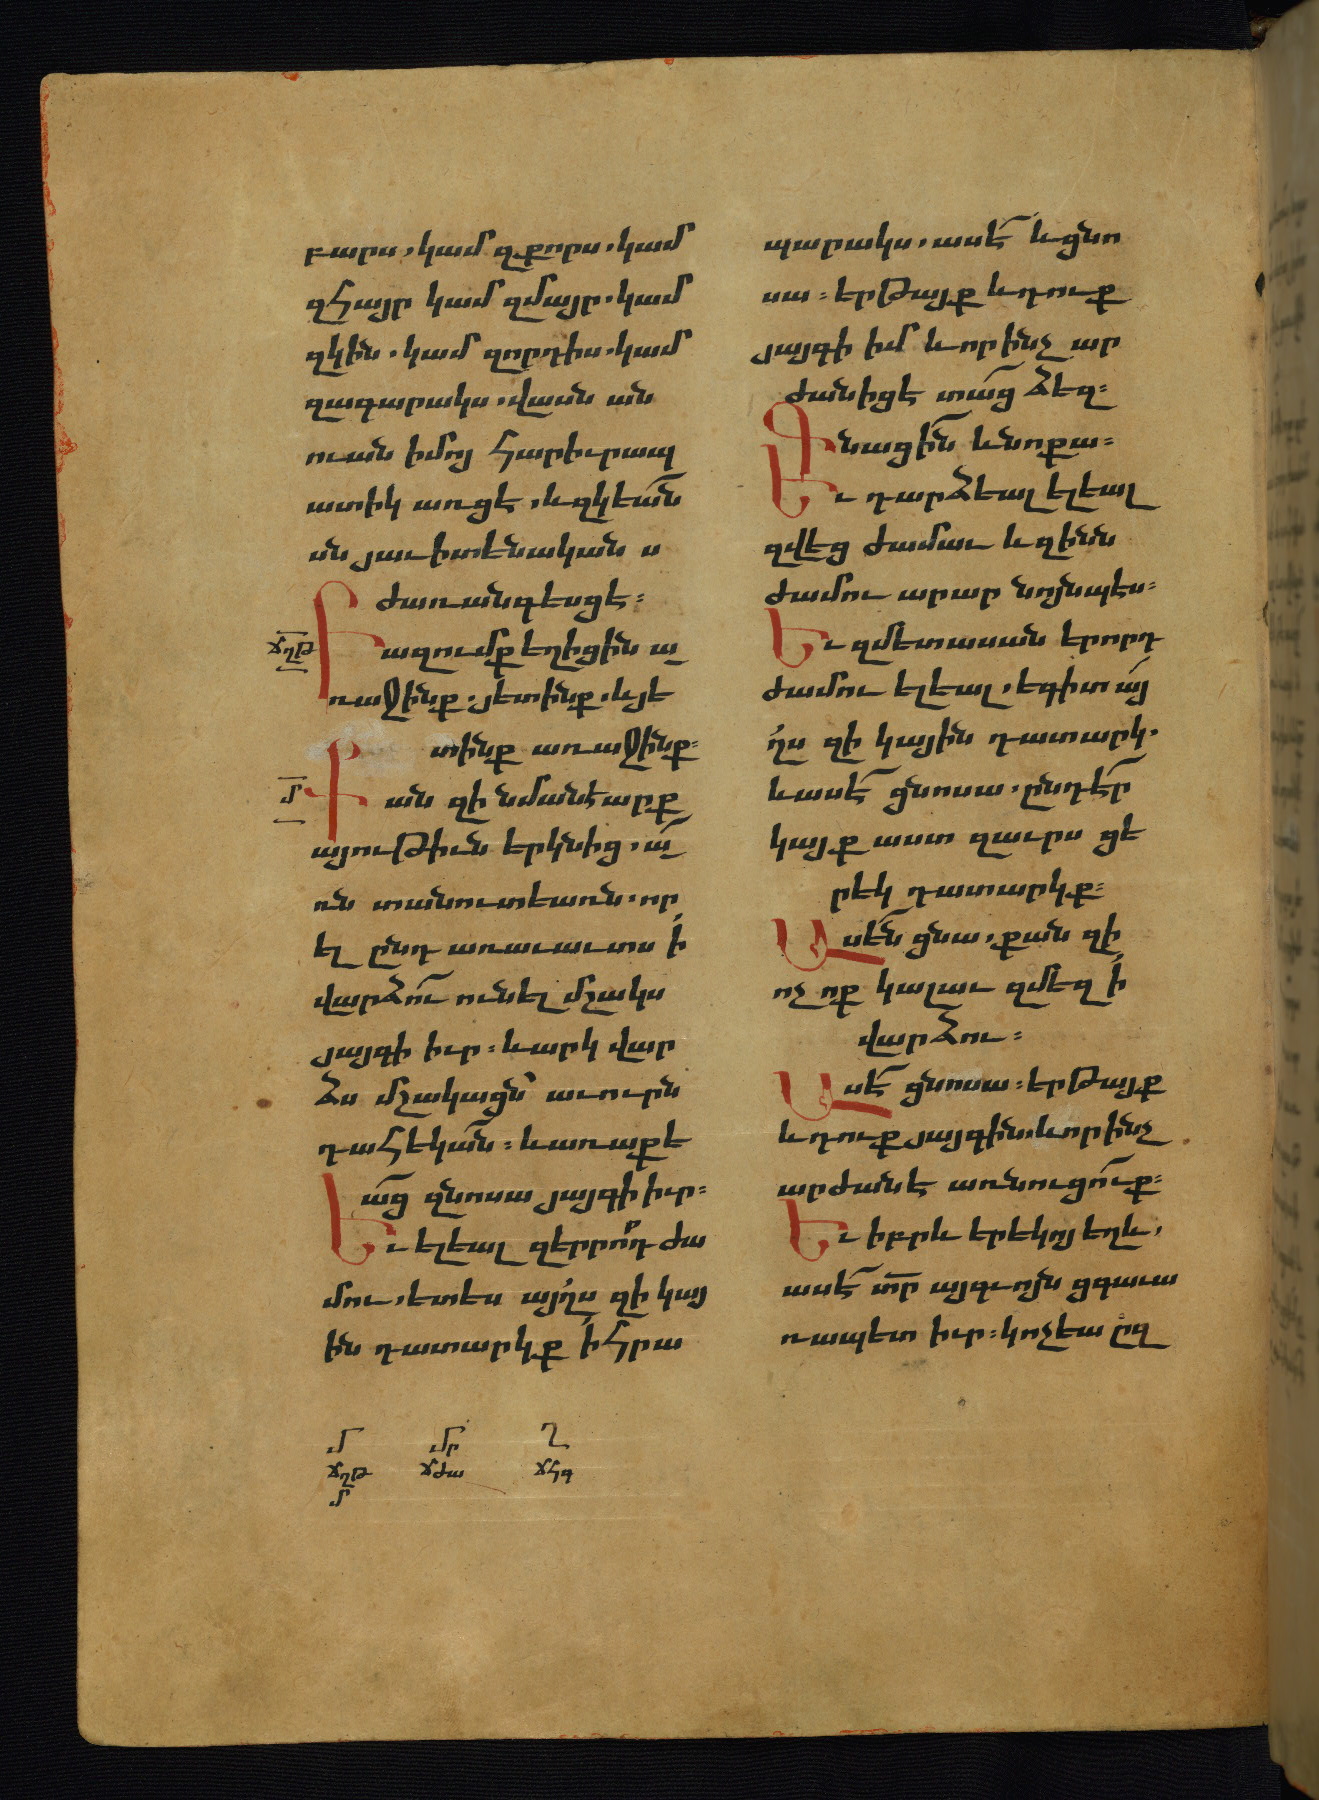 բարս, կամ զքորս. կամ
զհայր կամ զմայր. կամ
զկին. կամ զորդիս. կամ
զագարակս. վասն ան
ուան իմոյ հարիւրապ
ատիկ առցէ, և զկեա՜ն
սն յաւիտենական ս
ժառանգեսցէ:
ՃՂԹ
Բազումք եղիցին ա
ռաջինք. յետինք. և յե
տինք առաջինք:
Մ
Քան զի նման է արք
այութիւն երկնից. ա՜
ռն տանուտեառն. որ
ել ընդ առաւաւտս ի
վարձո՜ւ ունել մշակս
յայգի իւր: և արկ վար
ձս մշակացն աւուրն
դահեկա՜ն: և առաքե
ա՜ց զնոսա յայգի իւր:
Եւ ելեալ զերրո՜դ ժա
մու, ետես այլս զի կայ
ին դատարկք ի հրա
Մ ՄԲ Ղ
ՃՂԹ ՃԺԱ ՃՀԳ
Մ
պարակս, ասէ՜ և ցնո
սա: երթայք և դուք
յայգի իմ և որ ինչ ար
ժանիցէ տա՜ց ձեզ:
Գնացի՜ն և նոքա:
Եւ դարձեալ ելեալ
զվեց ժամաւ և զինն
ժամու արար նոյնպէս:
Եւ զմետասան երորդ
ժամու ելեալ, եգիտ ա՜յ
լս զի կային դատարկ.
և ասէ՜ ցնոսա. ընդէ՜ր
կայք աստ զաւրս ցե
րեկ դատարկք:
Ասե՜ն ցնա, քան զի
ոչ ոք կալաւ զմեզ ի
վարձու:
Ասէ՜ ցնոսա: երթայք
և դուք յայգին. և որ ինչ
արժան է առնուցո՜ւք:
Եւ իբրև երեկոյ եղև,
ասէ՜ տ՜ր այգւոյն ցգաւա
ռապետ իւր: կոչեա ըզ